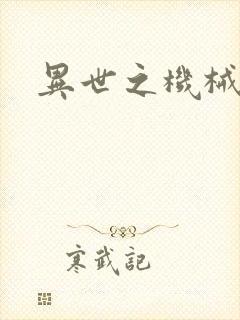 異世之機械
寒武記